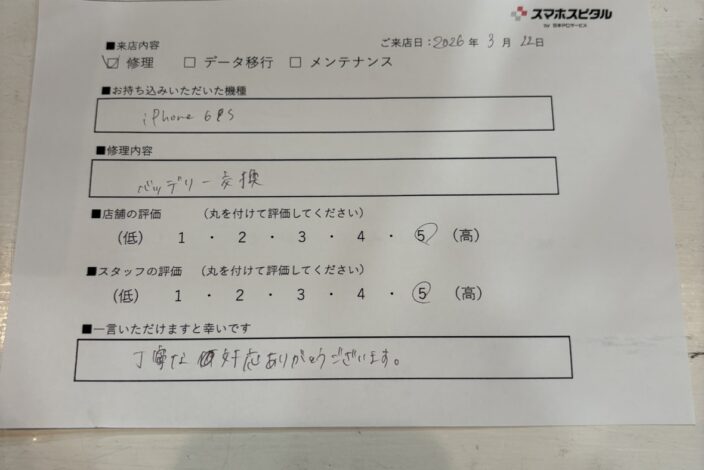 スマホスピタル
by 日本PCサービス
■来店内容
ご来店日：2026年 3月 22日
☑ 修理 □ データ移行 □ メンテナンス
■お持ち込みいただいた機種
iPhone 6PS
■修理内容
バッテリー交換
■店舗の評価 （丸を付けて評価してください）
（低） 1 ・ 2 ・ 3 ・ 4 ・ 5 （高）
■スタッフの評価 （丸を付けて評価してください）
（低） 1 ・ 2 ・ 3 ・ 4 ・ 5 （高）
■一言いただけますと幸いです
丁寧な対応ありがとうございます。